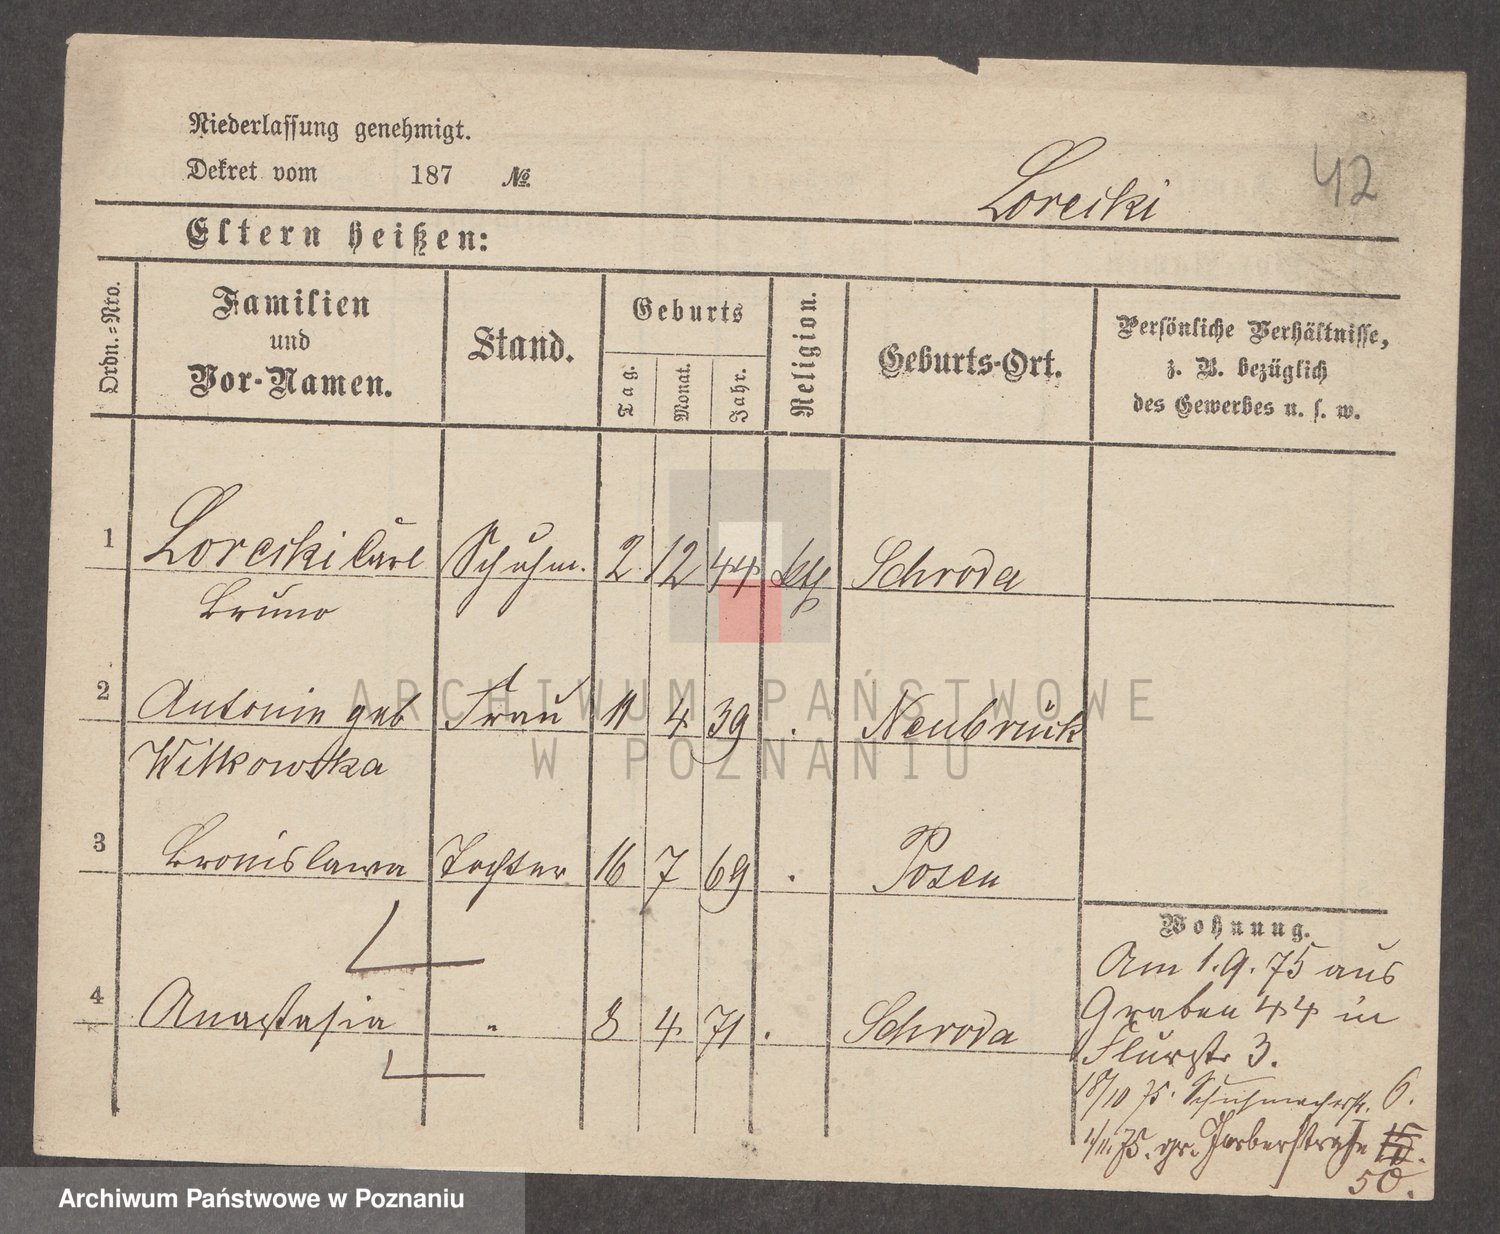 Niederlassung genehmigt.
Dekret vom 187 №
Lorecki 42
Eltern heißen:
Ordn.=Nro.
Familien
und
Vor-Namen.
Stand.
Geburts
Tag.
Monat.
Jahr.
Religion.
Geburts-Ort.
Persönliche Verhältnisse,
z. B. bezüglich
des Gewerbes u. s. w.
1 Lorecki Carl Schuhm. 2 12 44 kth Schroda
Bruno
2 Antonie geb Frau 11 4 39 . Neubrück
Witkowska
3 Bronislawa Tochter 16 7 69 . Posen
4 Anastasia " 8 4 71 . Schroda
Wohnung.
Am 1.9.75 aus
Graben 44 in
Flurstr 3.
18/10 75. Schuhmacherstr. 6.
4/11.75. gr. Gerberstraße
50.
ARCHIWUM PAŃSTWOWE
W POZNANIU
Archiwum Państwowe w Poznaniu